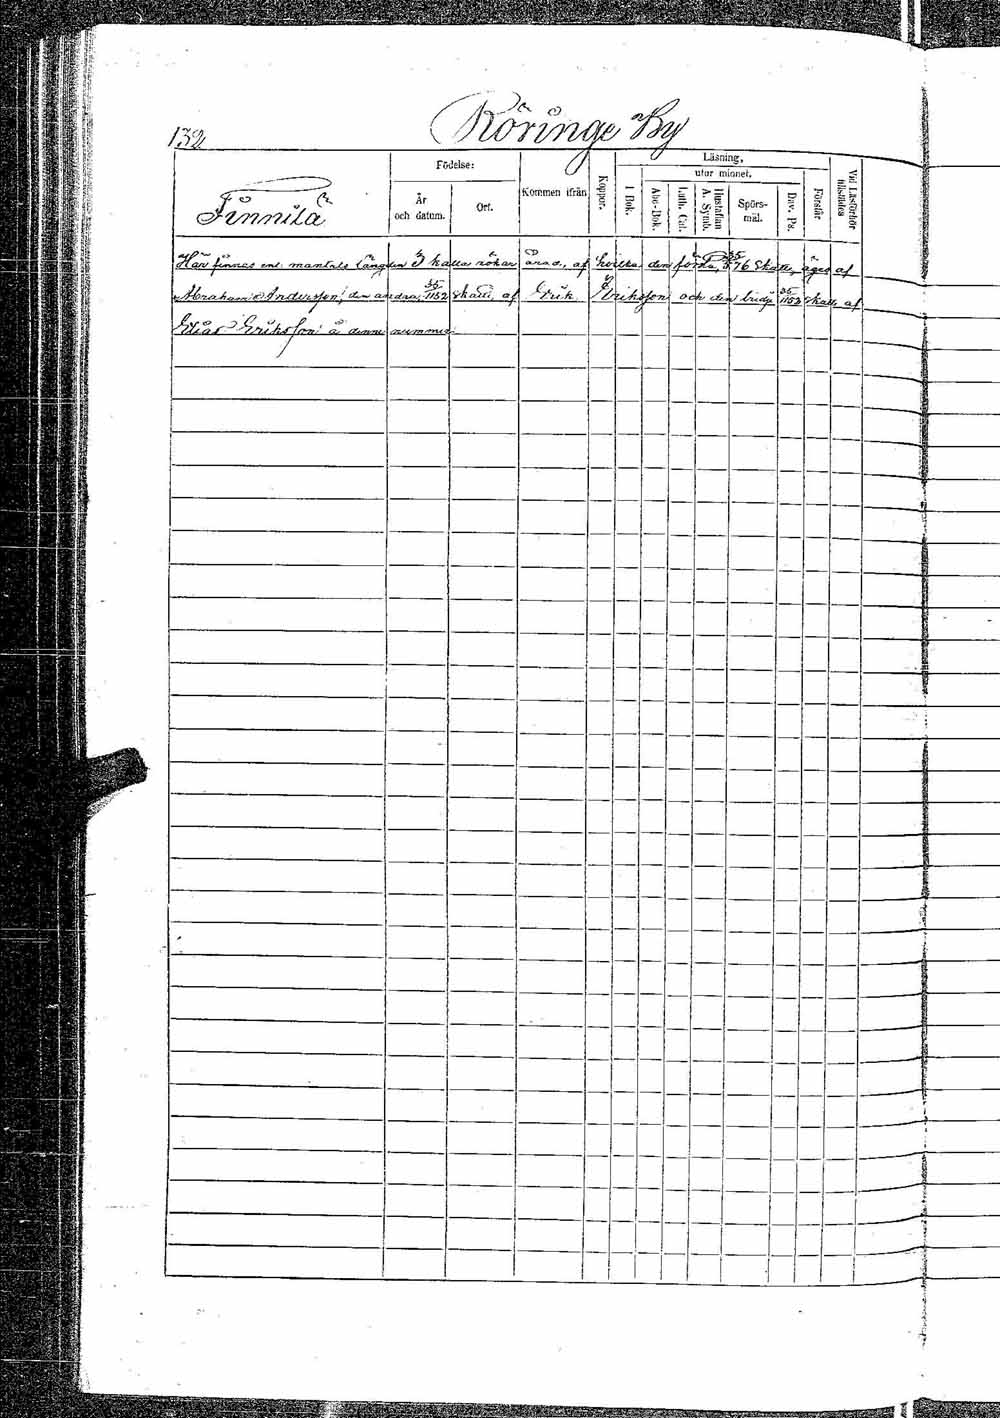 132
Röringe By
Finnilä
Födelse:
År och datum.
Ort.
Kommen ifrån
Koppor.
Läsning,
utur minnet.
I Bok.
Abc-Bok.
Luth. Cat.
Hustaflan A. Symb.
Spörs-mål.
Dav. Ps.
Förstår
Vid Läsförhör tilstädes
Här finnes enl. mantals längden 3 skatte rökar af hvilka den första, 35/576 skatte, äges af
Abraham Andersson, den andra, 35/1152 skatte, af Erik Eriksson och den tridje 35/1152 skatte af
Elias Eriksson å denne nummer.